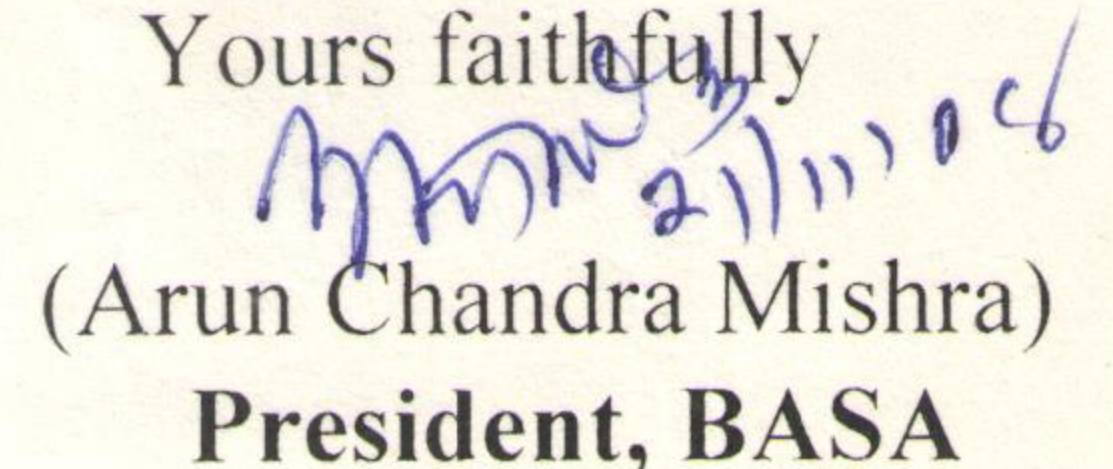 Yours faithfully
21/11/08
(Arun Chandra Mishra)
President, BASA